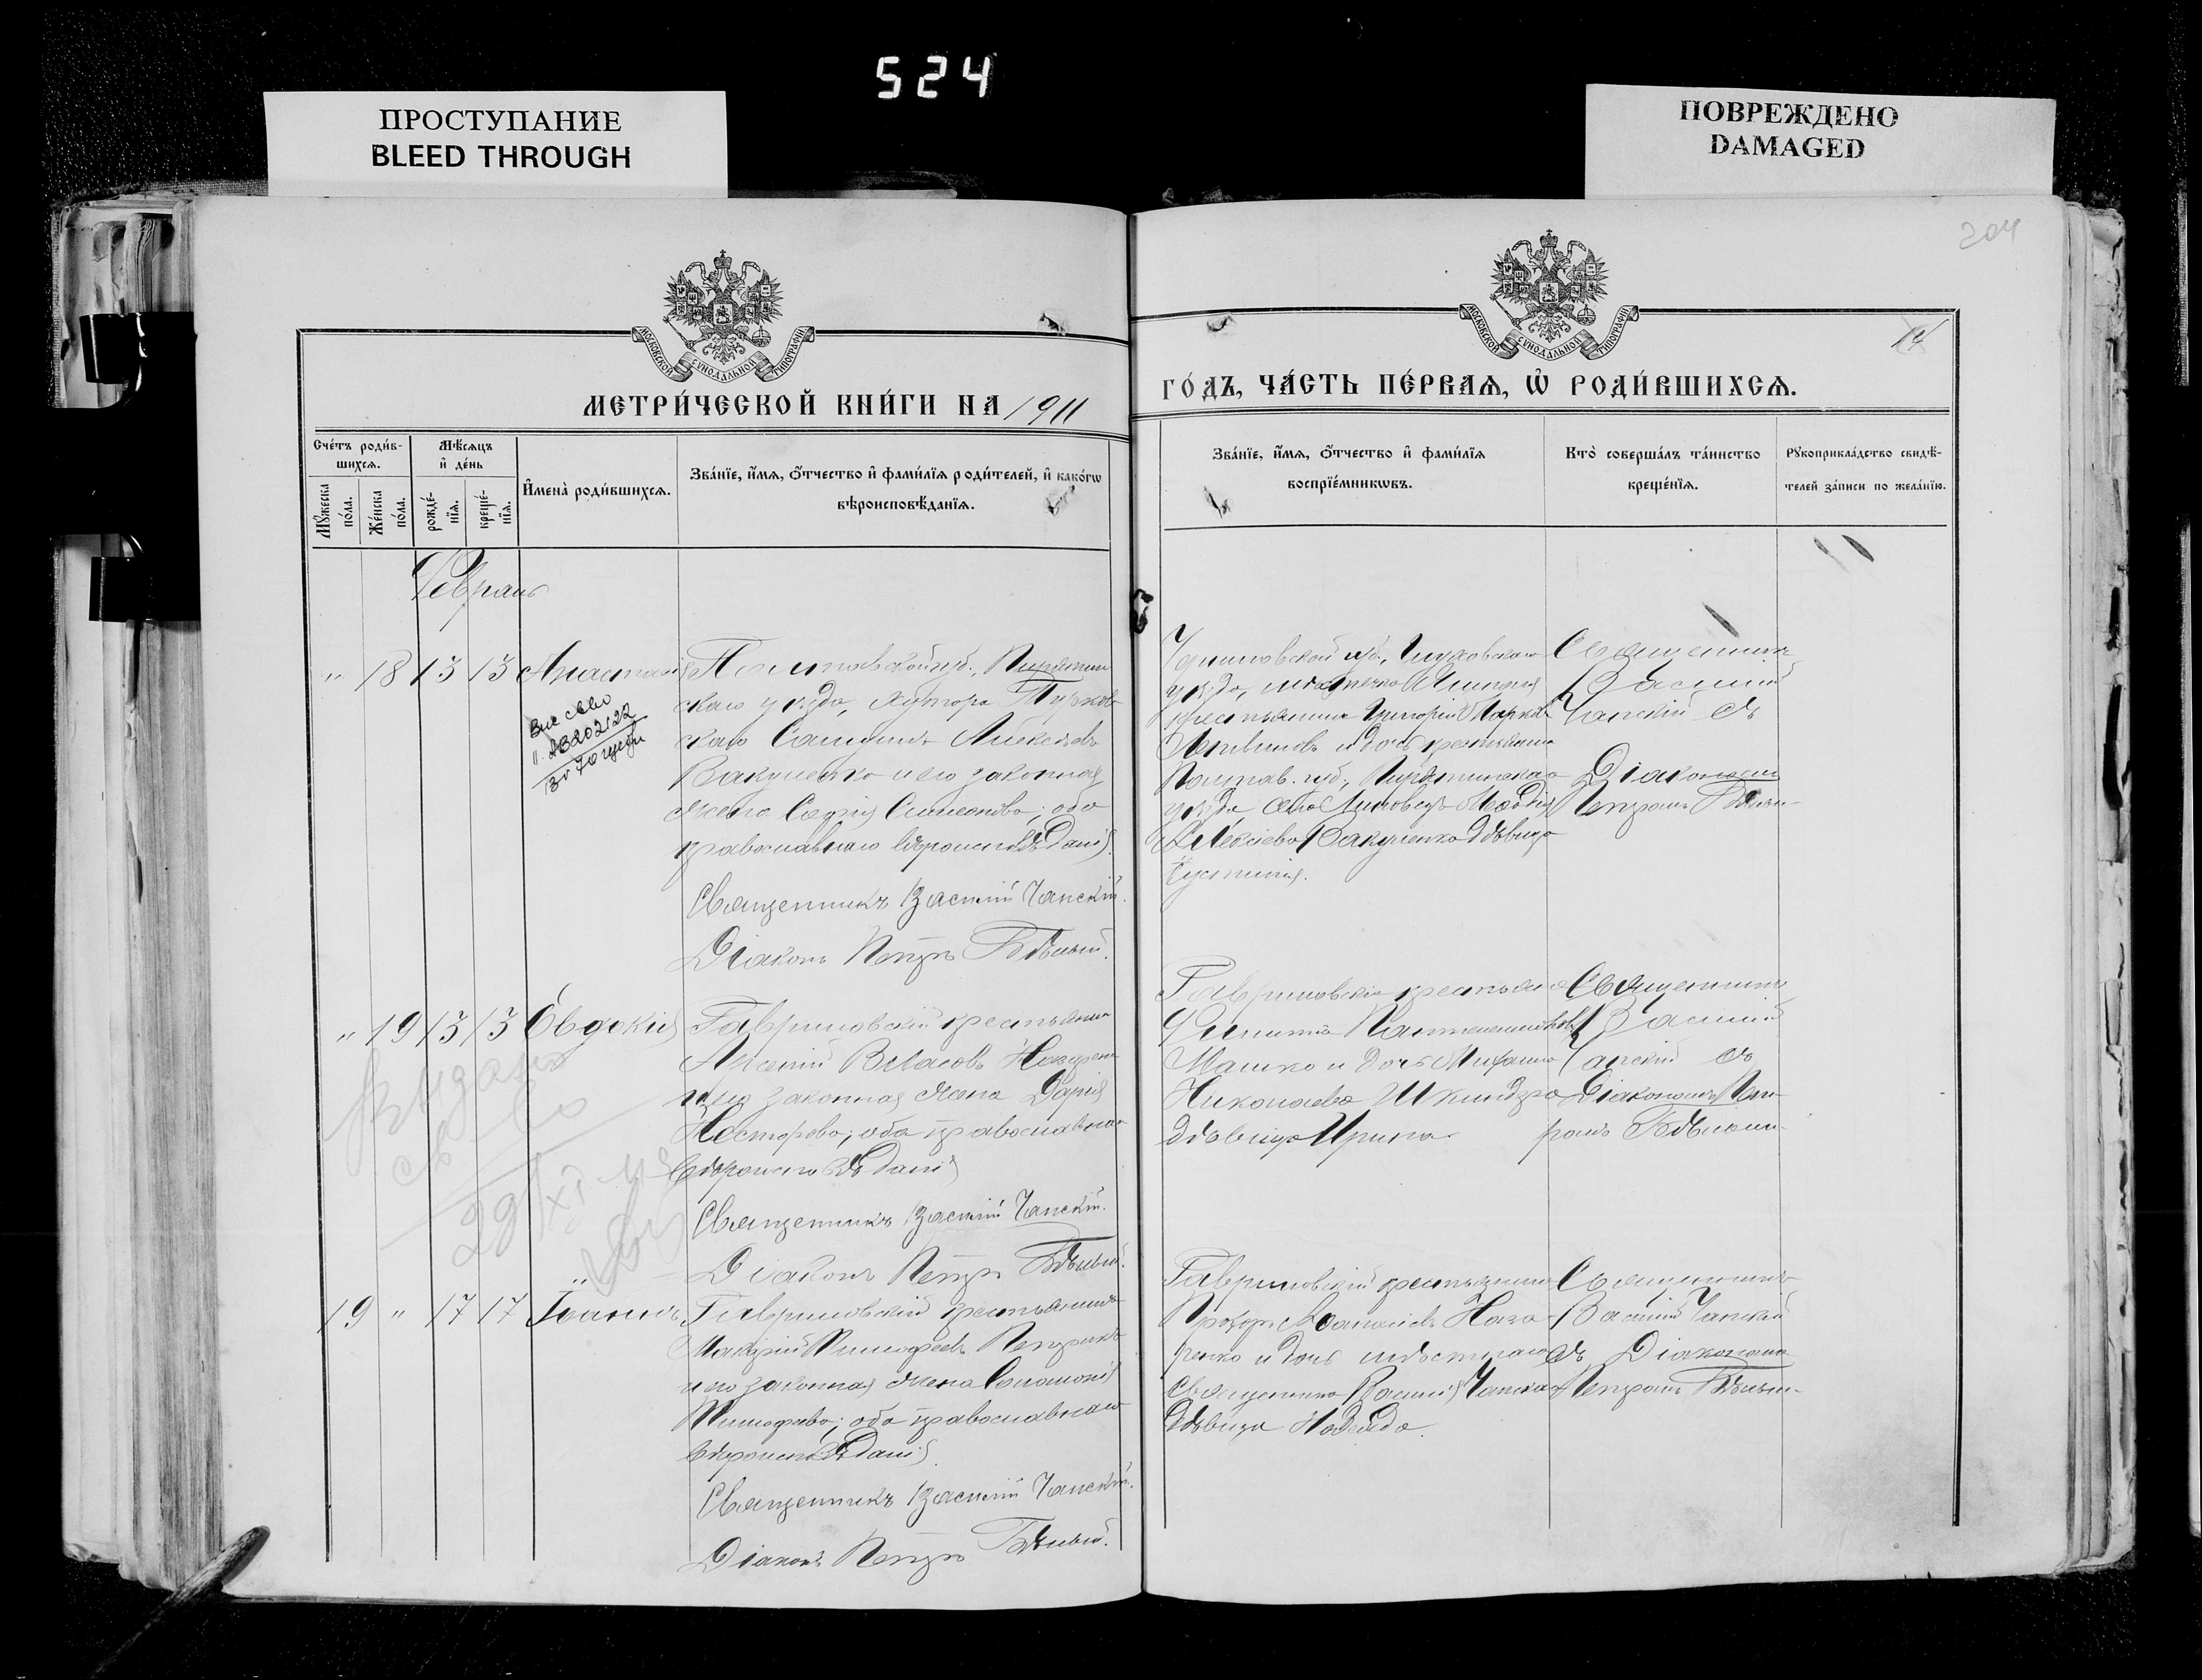 524
ПРОСТУПАНИЕ
BLEED THROUGH
ПОВРЕЖДЕНО
DAMAGED
204
14
МОСКОВСКОЙ СѴНОДАЛЬНОЙ ТИПОГРАФІИ
МОСКОВСКОЙ СѴНОДАЛЬНОЙ ТИПОГРАФІИ
МЕТРИ́ЧЕСКОЙ КНИ́ГИ НА 1911
ГО́ДЪ, ЧА́СТЬ ПЕ́РВАѦ, Ѡ҆ РОДИ́ВШИХСѦ.
Сче́тъ роди́в-
шихсѧ.
Мѣ́сѧцъ
и҆ де́нь
Мꙋ́жеска
по́ла.
Же́нска
по́ла.
рожде́-
нїѧ.
креще́-
нїѧ.
И҆мена̀ роди́вшихсѧ.
Зва́нїе, и҆́мѧ, ѻ҆́тчество и҆ фами́лїѧ роди́телей, и҆ како́гѡ
вѣроисповѣ́данїѧ.
Зва́нїе, и҆́мѧ, ѻ҆́тчество и҆ фами́лїѧ
воспрїе́мникѡвъ.
Кто̀ соверша́лъ та́инство
креще́нїѧ.
Рꙋкоприкла́дство свидѣ́-
телей за́писи по жела́нїю.
Февраль
" 18 13 13 Анастасія
Полтавской губ., Пирятин
скаго уѣзда, хутора
скаго Алексѣевъ
Вакуленко и его законная
жена Софія Симеонова; оба
православнаго вѣроисповѣданія.
Священникъ Василій Чапскій.
Діаконъ Петръ Бѣлый.
Черниговской губ., Глуховскаго
уѣзда, мѣстечка
крестьянинъ Григорій Марковъ
Литвиновъ и дочь крестьянина
Полтав. губ., Пирятинскаго
уѣзда, села
Алексіева Вакуленко дѣвица
Іустинія.
Священникъ
Василій
Чапскій съ
Діакономъ
Петромъ Бѣлым-
" 19 13 13 Евдокія
Гавриловскій крестьянинъ
Арсеній Власовъ
и его законная жена Дарія
Несторова; оба православнаго
вѣроисповѣданія
Священникъ Василій Чапскій.
Діаконъ Петръ Бѣлый.
Гавриловскіе крестьяне
Филиппъ Пантелеимоновъ
Машко и дочь Михаила
Николаева Шкиндера
дѣвица Ирина
Священникъ
Василій
Чапскій съ
Діакономъ Пет-
ромъ Бѣлым-
Выдано
св-во
29/XI
19 " 17 17 Іоаннъ
Гавриловскій крестьянинъ
Макарій Тимофеевъ Петрикъ
и его законная жена Соломонія
Тимофеева; оба православнаго
вѣроисповѣданія.
Священникъ Василій Чапскій.
Діаконъ Петръ Бѣлый.
Гавриловскій крестьянинъ
Прохоръ Аѳанасіевъ Наза-
ренко и дочь мѣстнаго
священника Василія Чапскаго
дѣвица Надежда.
Священникъ
Василій Чапскій
съ Діакономъ
Петромъ Бѣлым-